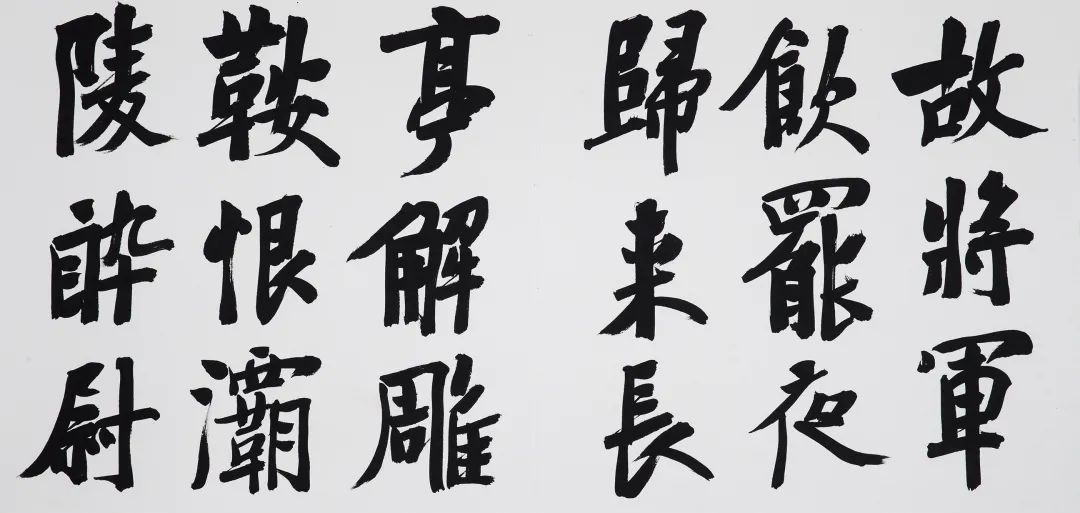 故將軍
飲罷夜
歸来長
亭解雕
鞍恨灞
陵酔尉